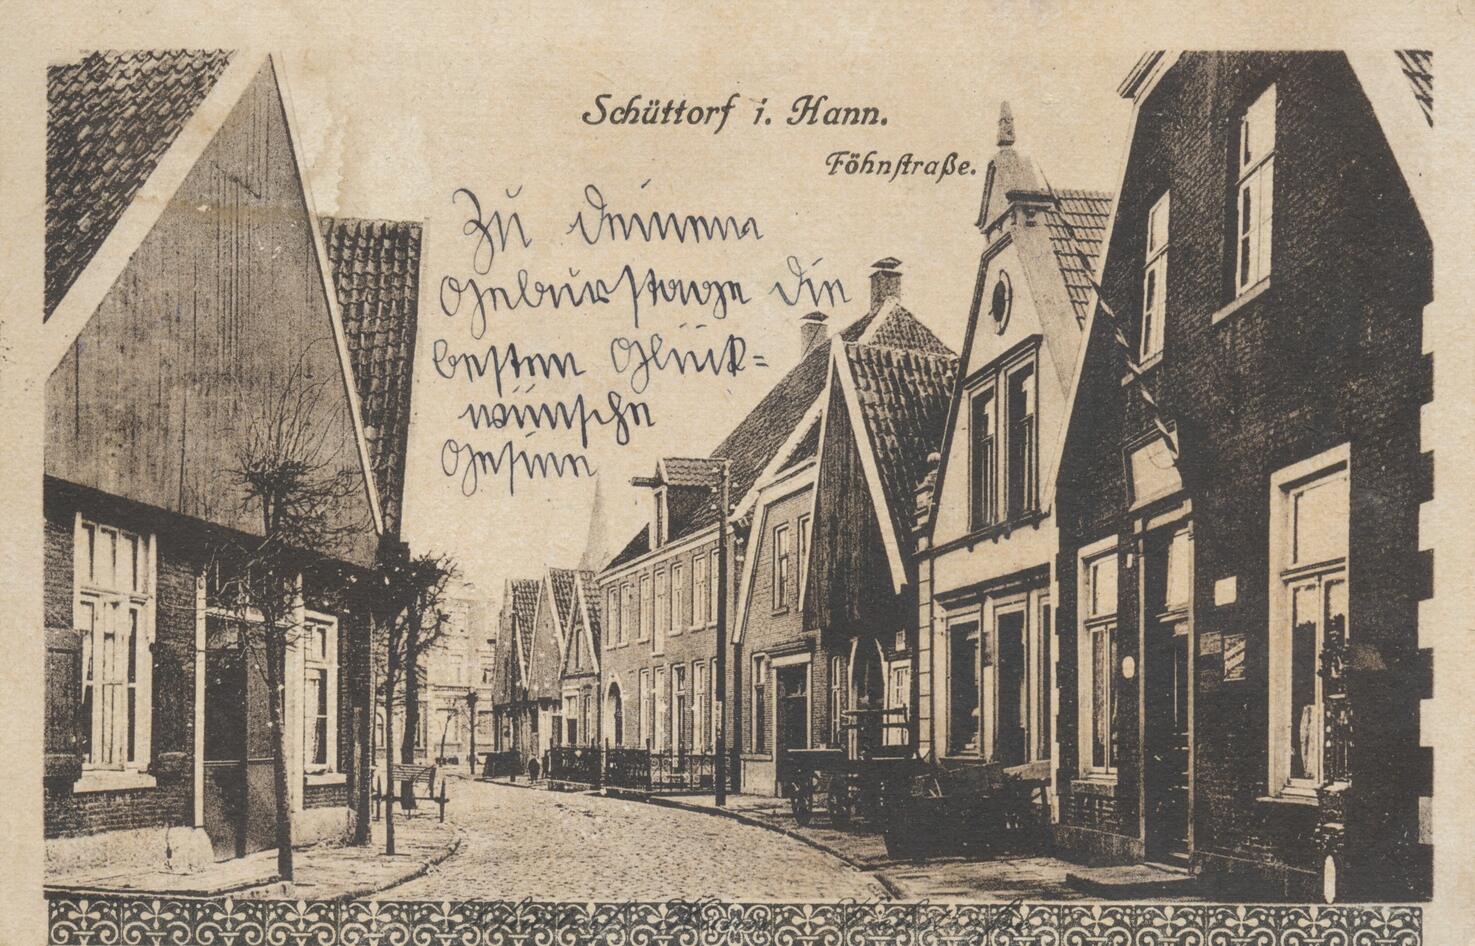 Schüttorf i. Hann.
Föhnstraße.
Zu deinem
Geburstage die
besten Glück=
wünsche
Gesine